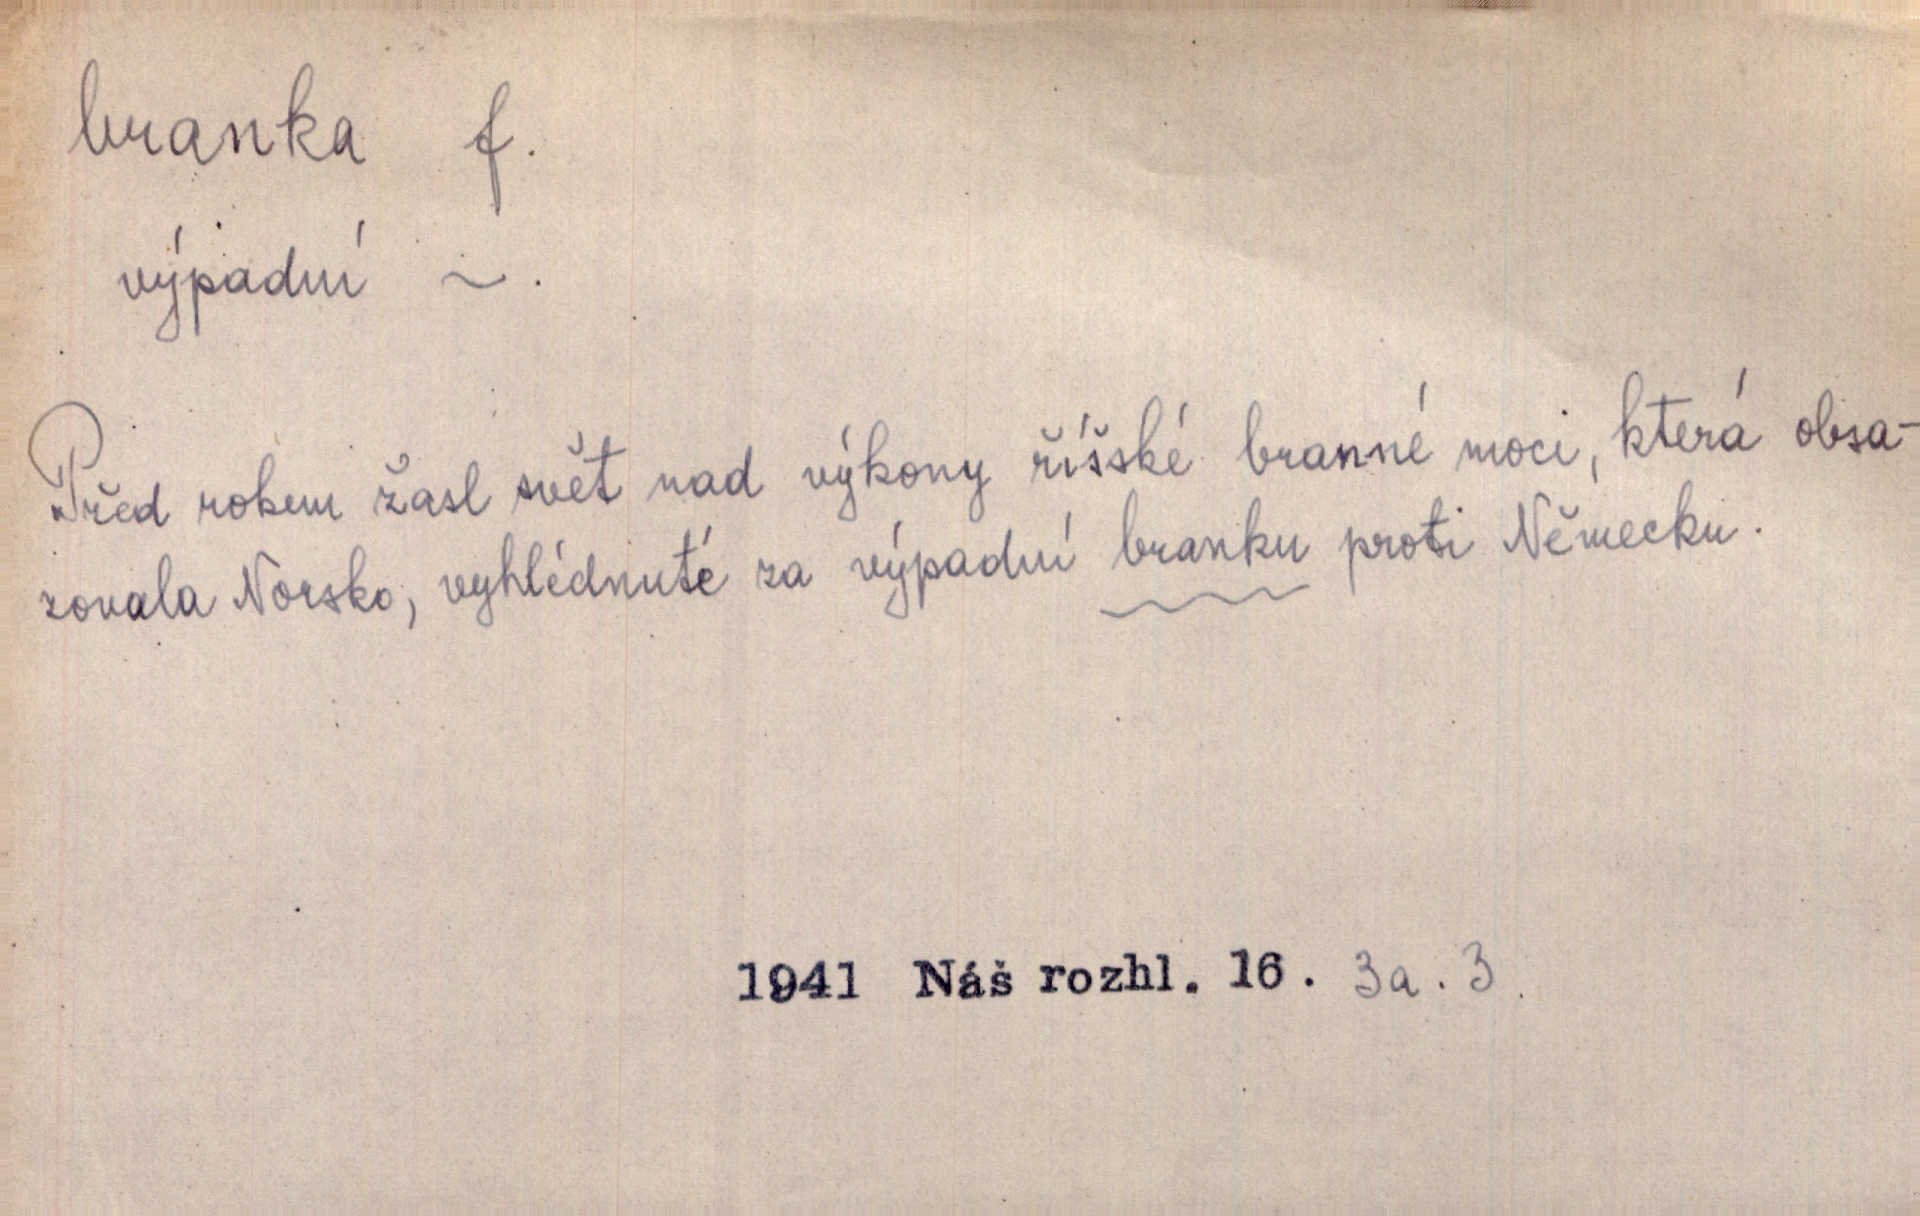 branka f.
výpadní ~.
Před rokem žasl svět nad výkony říšské branné moci, která obsa-
zovala Norsko, vyhlédnuté za výpadní branku proti Německu.
1941 Náš rozhl. 16. 3a. 3.